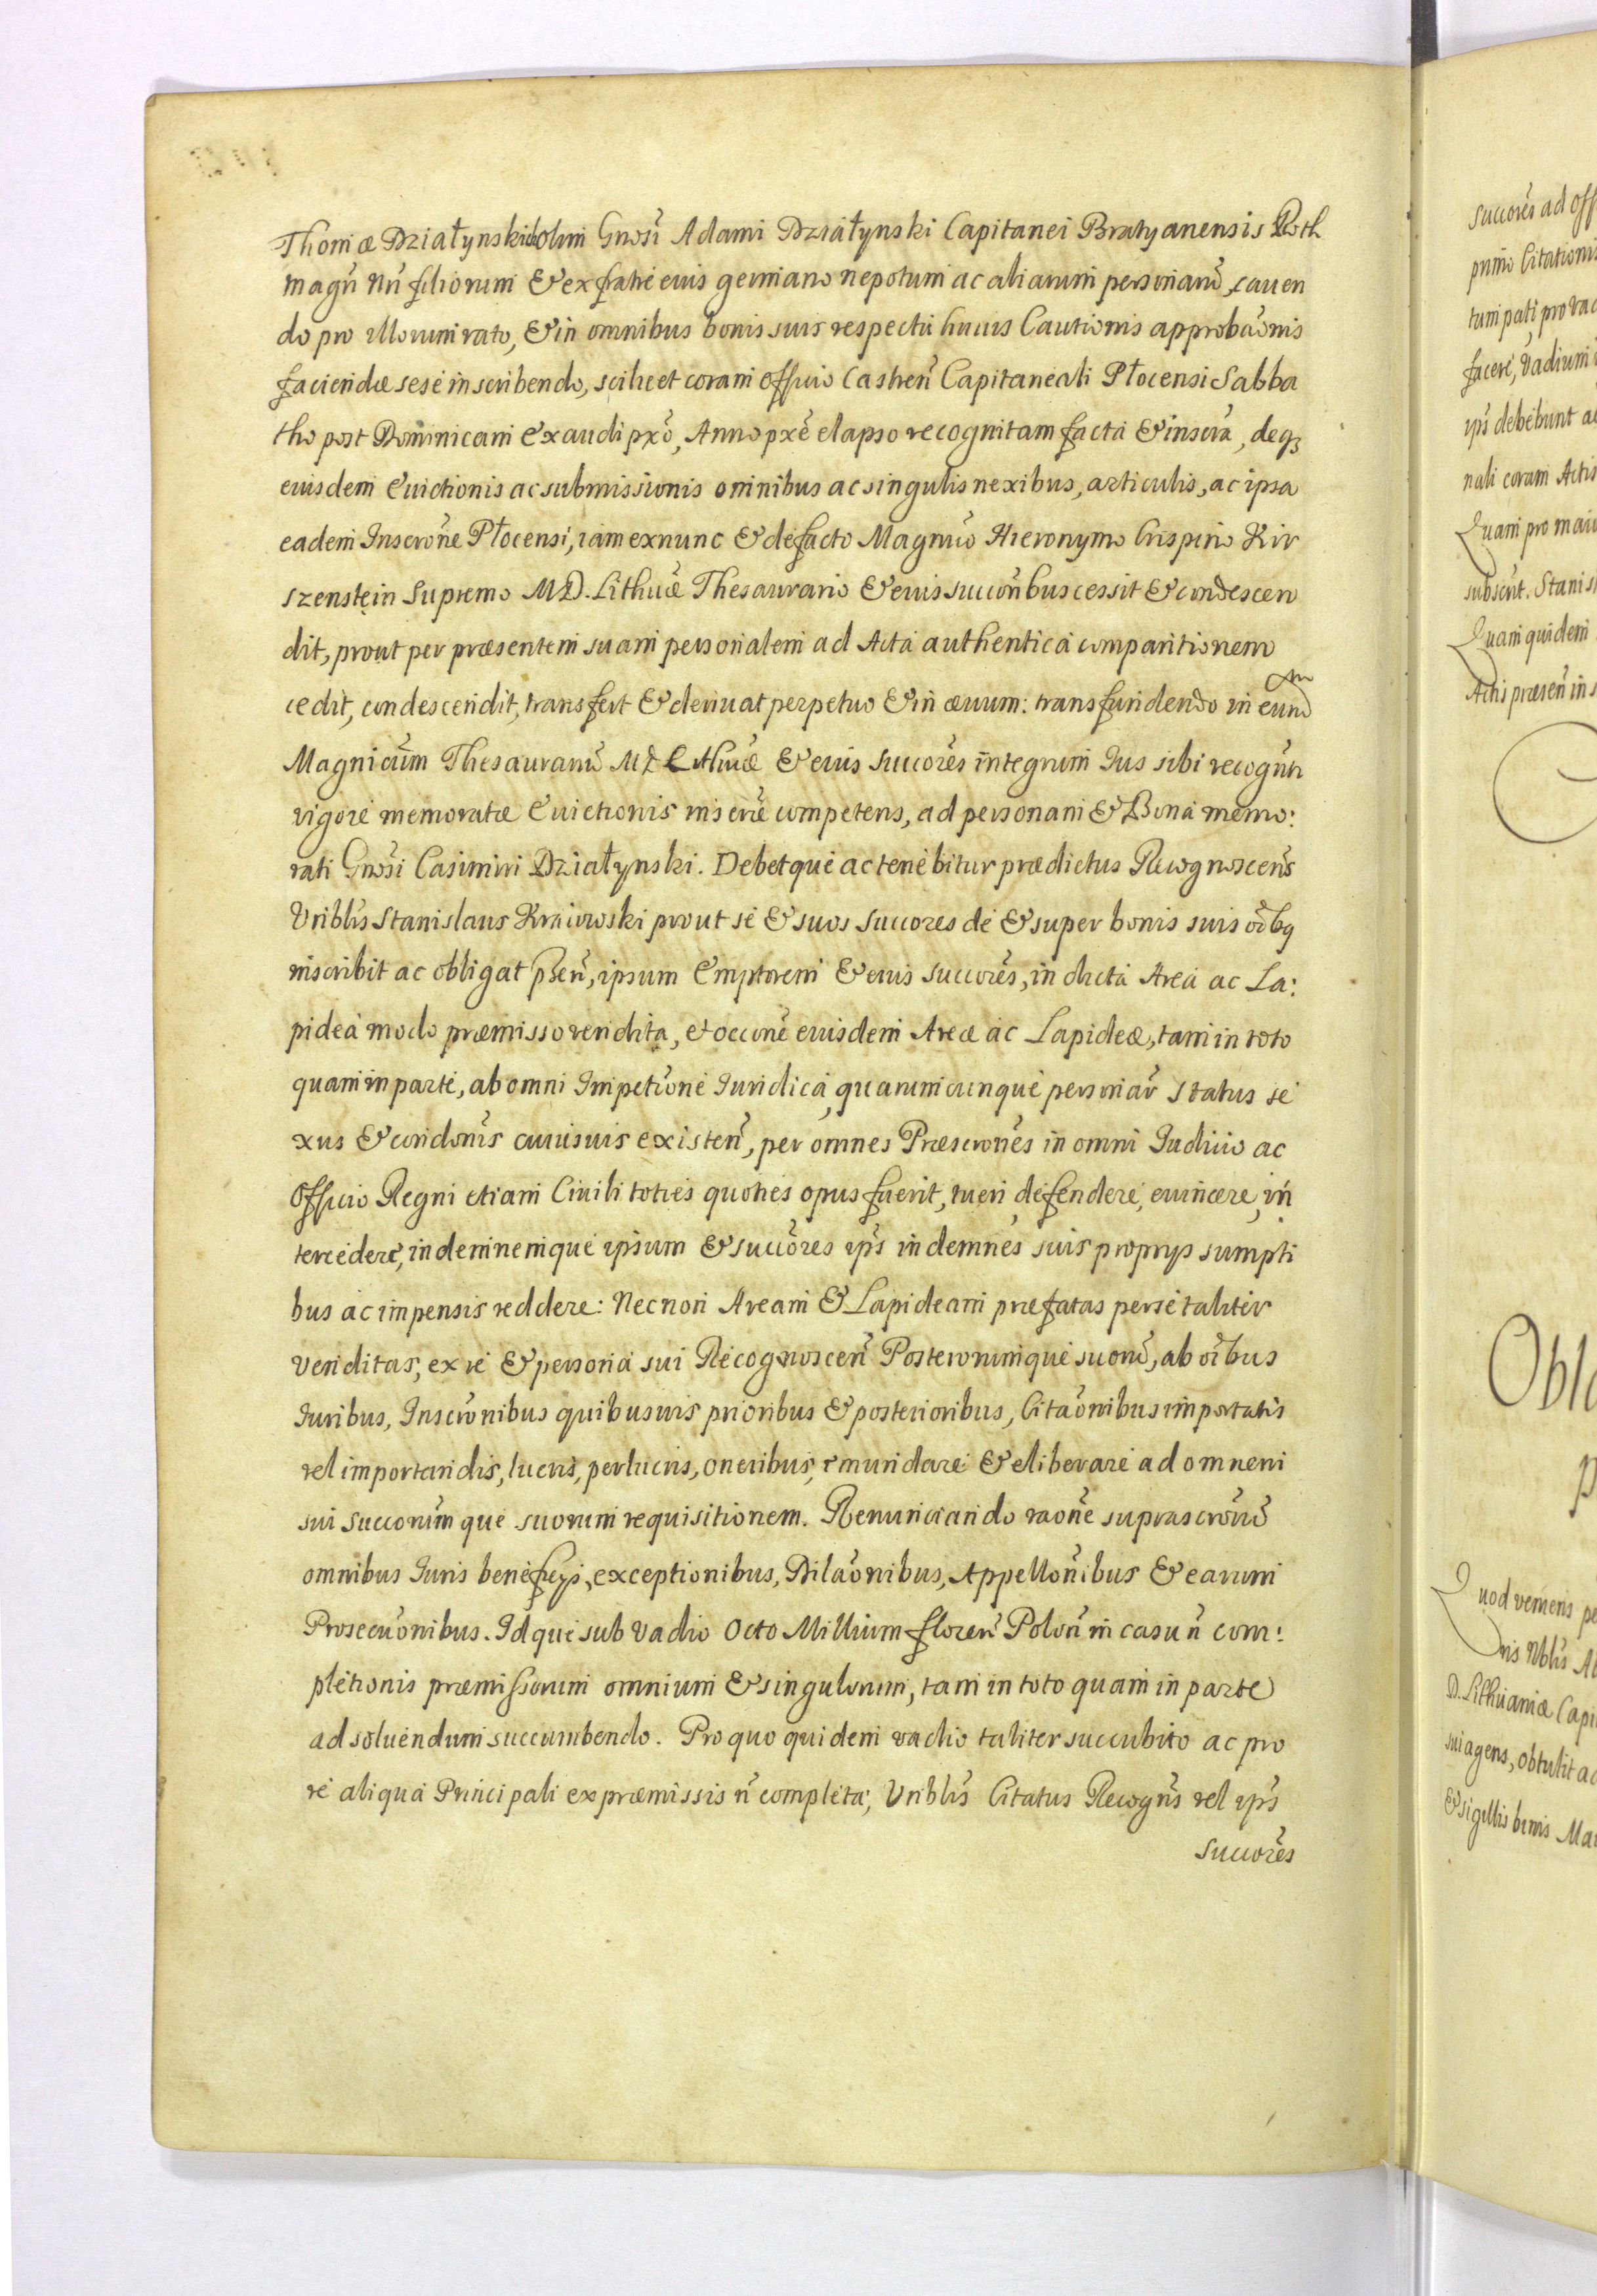 Thomæ Działynski olim Gnosi Adami Działynski Capitanei Bratyanensis Roth
magri Nri filiorum & ex fratre eius germano nepotum ac aliarum personarū, cauen
do pro illorum rato, & in omnibus bonis suis respectu huius Cautionis approbaōnis
faciendæ sese inscribendo, scilicet coram Officio Castreñ Capitaneali Płocensi Sabba
tho post Dominicam Exaudi pxō, Anno pxē elapso recognitam facta & inscra, deq3
eiusdem Euictionis ac submissionis omnibus ac singulis nexibus, articulis, ac ipsa
eadem Inscrōne Płocensi, iam exnunc & defacto Magnco Hieronymo Crispino Kir
szenstein Supremo M.D. Lithuæ Thesaurario & eius succoribus cessit & condescen
dit, prout per præsentem suam personalem ad Acta authentica comparitionem
cedit, condescendit, transfert & deriuat perpetuo & in æuum: transfundendo in eund
Magnicūm Thesaurarū M D Lithuæ & eius Succorēs integrum Ius sibi recogñti
vigore memoratæ Euictionis inscræ competens, ad personam & Bona memo:
rati Gnosi Casimiri Działynski. Debetque ac tenebitur prædictus Recognoscens
Vrīblis Stanislaus Kraiowski prout se & suos Succores de & super bonis suis oībq
inscribit ac obligat pseñ, ipsum Emptorem & eius Succorēs, in dicta Area ac La:
pidea modo præmisso vendita, et occōne eiusdem Areæ ac Lapideæ, tam in toto
quam in parte, ab omni Impetiōne Iuridica quarumcunque personar Status se
xus & condōnis cuiusuis existeñ, per omnes Præscrōnes in omni Iudicio ac
Officio Regni etiam Ciuili toties quoties opus fuerit, tueri defendere, euincere, in
tercedere, indemnemque ipsum & succōres ipš indemnes suis proprijs sumpti
bus ac impensis reddere: Necnon Aream & Lapideam præfatas per se taliter
venditas, ex re & persona sui Recognosceñ Posterorumque suorū, ab oībus
Iuribus, Inscrōnibus quibusuis prioribus & posterioribus, Citaōnibus importatis
vel importandis, lucris, perlucris, oneribus, emundare & eliberare ad omnem
sui Succorumque suorum requisitionem. Renunciando raōne suprascrōrū
omnibus Iuris beneficijs, exceptionibus, Dilaōnibus, Appellōnibus & earum
Prosecuōnibus. Idque sub vadio Octo Millium floreñ Poloñ in casu ñ com:
pletionis præmissorum omnium & singulorum, tam in toto quam in parte
ad soluendum succumbendo. Pro quo quidem vadio taliter succubito ac pro
re aliqua Principali ex præmissis ñ completa, Vrīblis Citatus Recogñs vel ipš
Succorēs
succores ad off
primo Citationis
tum pati, pro vad
facere, vadium
ipš debebunt a
nali coram Actis
Quam pro maio
subscrit. Stanis
Quam quidem
Actis præseñ ins
Obla
p
Quod veniens pe
nis Nblis A
D. Lithuaniæ Capi
sui agens, obtulit ac
& sigillis binis Ma